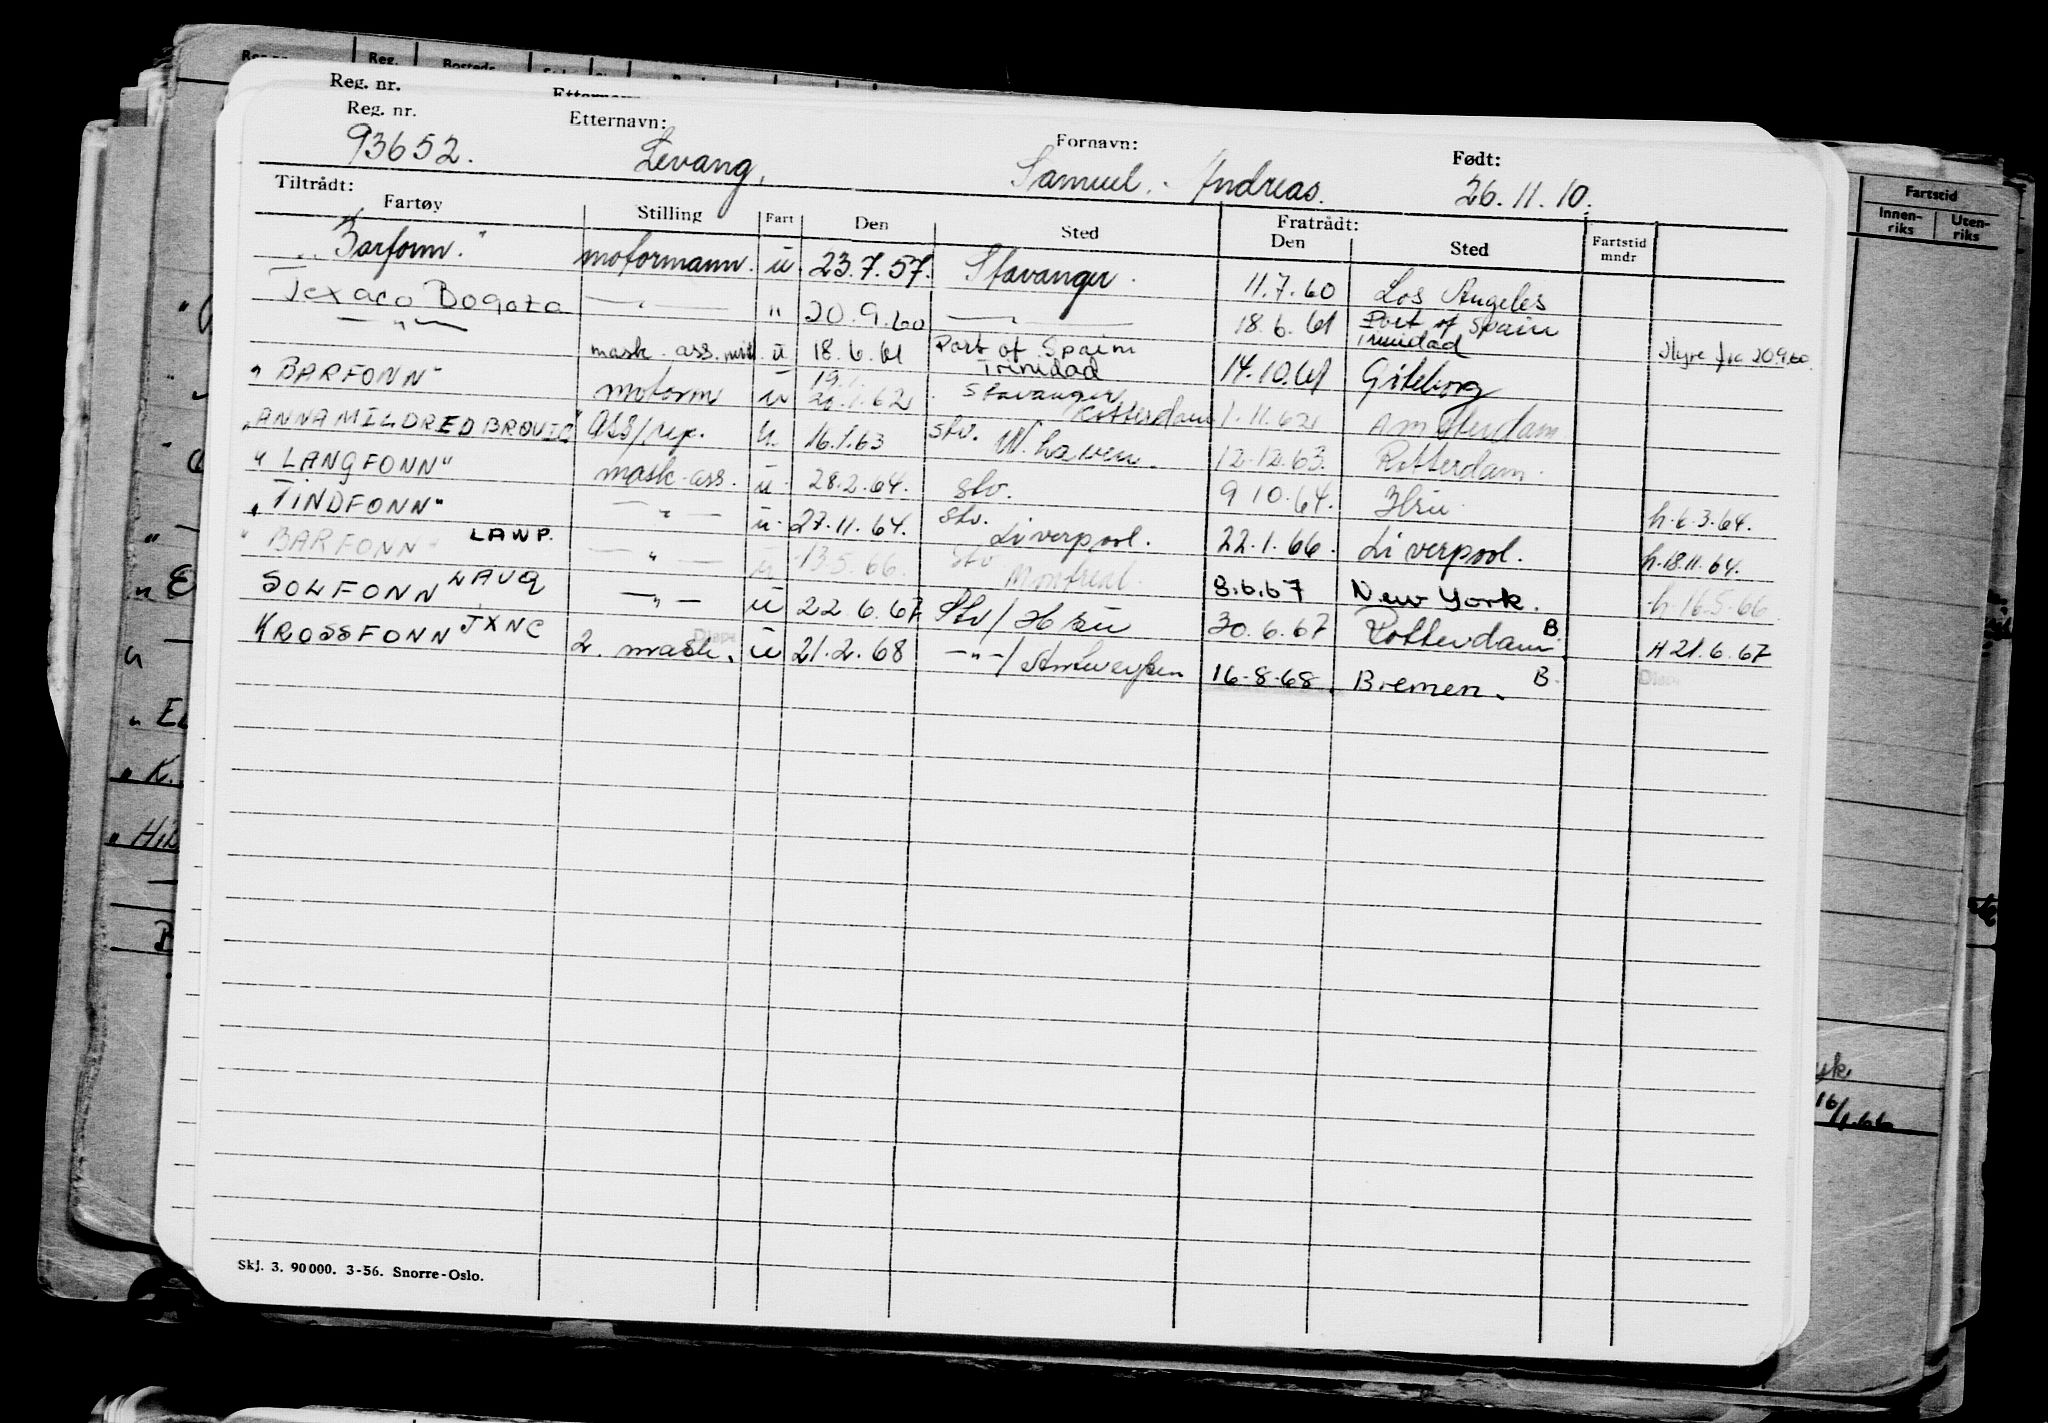 Reg. nr.
Reg. nr. Etternavn: Fornavn: Født:
93652. Levang, Samuel.- Andreas. 26.11.10.
Tiltrådt: Fratrådt:
Fartøy Stilling Fart Den Sted Den Sted Fartstid mndr
"Barfonn." motormann. u. 23.7.57. Stavanger. 11.7.60 Los Angeles
Texaco Bogota — " — " 20.9.60 — " — 18.6.61 Port of Spain Trinidad
— " — mask. ass. u 18.6.61 Port of Spain Trinidad 14.10.61 Göteborg Hyre fra 20.9.60.
"BARFONN" motorm u 19.1. 20.1.62 Stavanger Rotterdam 1.11.62 Amsterdam
"ANNA MILDRED BRØVIG" ass/rep. u. 16.1.63 Stv. W.haven. 12.12.63. Rotterdam.
"LANGFONN" mask.ass. u. 28.2.64. Stv. 9.10.64. h.6.3.64.
"TINDFONN" — " — u. 27.11.64. Stv. Liverpool. 22.1.66. Liverpool. h.18.11.64.
"BARFONN" LAWP. — " — u 13.5.66. Stv Montreal. 8.6.67 New York. h.16.5.66
SOLFONN LAUQ — " — u 22.6.67 Stv/ 30.6.67 Rotterdam B. H 21.6.67
KROSSFONN JXNC 2. mask. u 21.2.68 —"—/Antwerpen 16.8.68. Bremen. B.
Skj. 3. 90000. 3-56. Snorre-Oslo.
Fartstid
Innen-riks Uten-riks
16/1.66